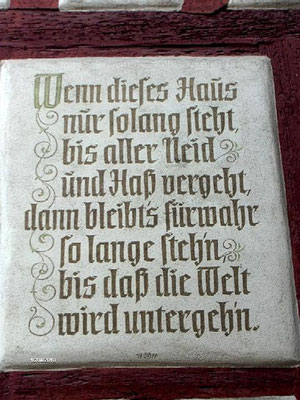 Wenn dieses Haus
nur solang steht,
bis aller Neid
und Haß vergeht,
dann bleibt's fürwahr
so lange steh'n,
bis daß die Welt
wird untergeh'n.